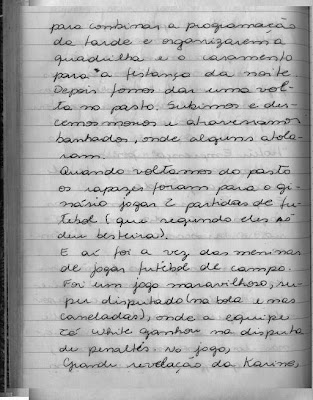 para combinar a programação
da tarde e organizarem a
quadrilha e o casamento
para a festança da noite.
Depois fomos dar uma vol-
ta no pasto. Subimos e des-
cemos morros e atravessamos
banhados, onde alguns atola-
ram.
Quando voltamos do pasto
os rapazes foram para o gi-
násio jogar 2 partidas de fu-
tebol (que segundo eles só
deu besteira).
E aí foi a vez das meninas
de jogar futebol de campo
Foi um jogo maravilhoso, su-
per disputado (na bola e nas
caneladas), onde a equipe
white ganhou na disputa
de penaltis no jogo,
Grande revelação da Karina,